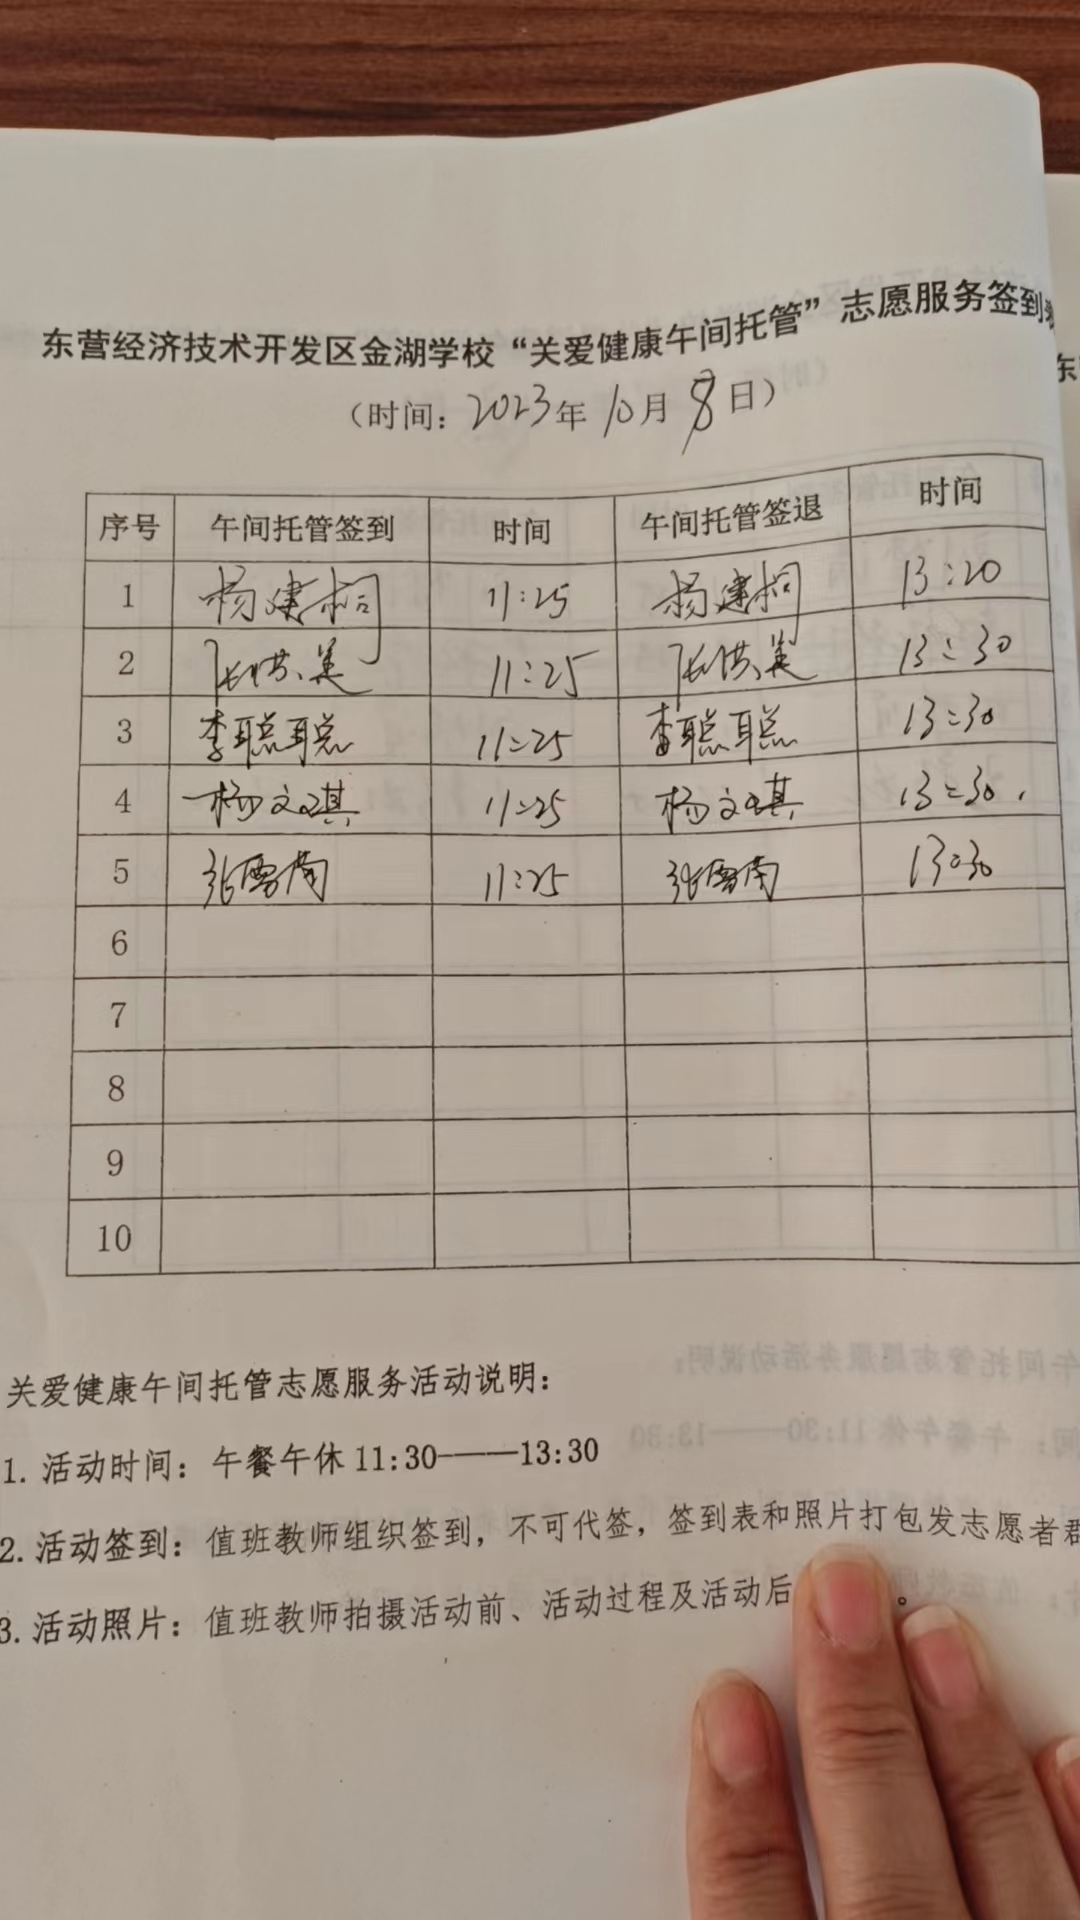 东营经济技术开发区金湖学校“关爱健康午间托管”志愿服务签到
（时间：2023年10月8日）
序号 午间托管签到 时间 午间托管签退 时间
1 杨建桐 11:25 杨建桐 13:20
2 张洪美 11:25 张洪美 13:30
3 李聪聪 11:25 李聪聪 13:30
4 杨文琪 11:25 杨文琪 13:30.
5 张雪南 11:25 张雪南 13:30
6
7
8
9
10
关爱健康午间托管志愿服务活动说明：
1.活动时间：午餐午休11:30——13:30
2.活动签到：值班教师组织签到，不可代签，签到表和照片打包发志愿者群
3.活动照片：值班教师拍摄活动前、活动过程及活动后 。